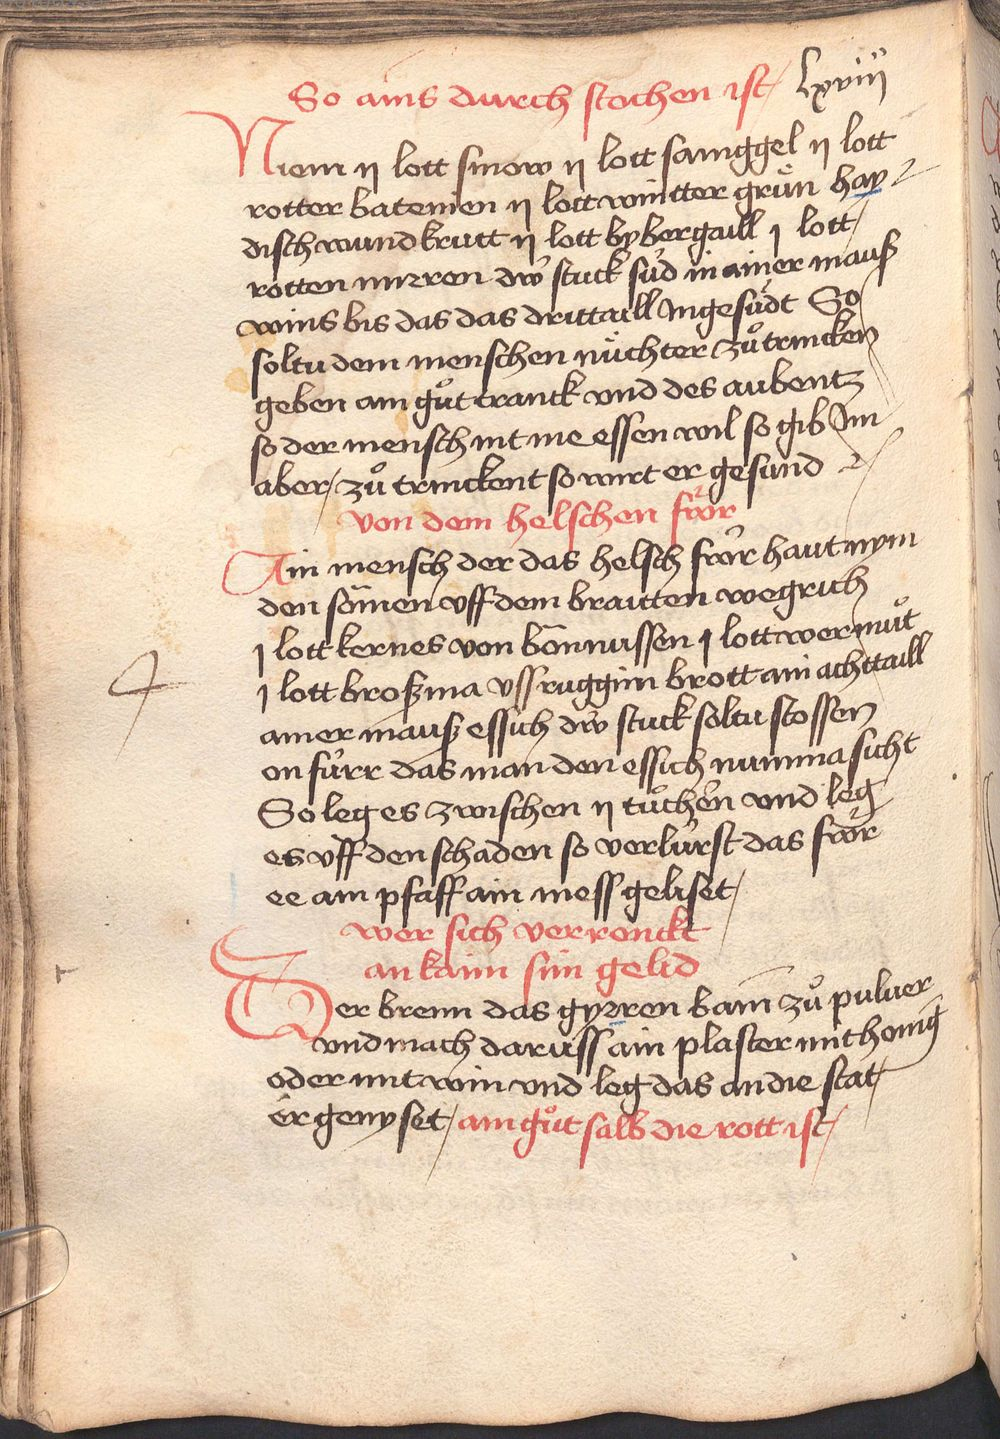 So ains durch stochen ist / lxviij
Niem ij lott sinow ij lott saniggel ij lott
rotter batenien ij lott wintter grůn hay
disch wundkrutt ij lott bybergaill j lott /
rotten mirren dẃ stuck sůd in ainer mauß
wins bis das das drittaill Ingesůdt So
soltu dem menschen nůchter zů trincken
geben ain gůt tranck vnd des aubentz
so der mensch nit me essen wil so gib Im
aber / zů trinckent so wirt er gesund
von dem helschen fẃr
Ain mensch der das helsch fẃr haut nym
den sömen vff dem braitten wegrich
j lott kernes von bönnussen j lott wermůt
j lott broßma vss ruggim brott ain achttaill
ainer mauß essich dẃ stuck soltu stossen
on fúrr das man den essich numma sicht
So leg es zwischen ij tůchen vnd leg
es vff den schaden so verlúrst das fẃr
ee ain pfaff ain mess geliset /
wer sich verrenckt
an kaim sim gelid
Der brenn das gyrren bain zů puluer
vnd mach daruss ain plaster mit honig
oder mit win vnd leg das an die stat
er genyset / ain gůt salb die rott ist /